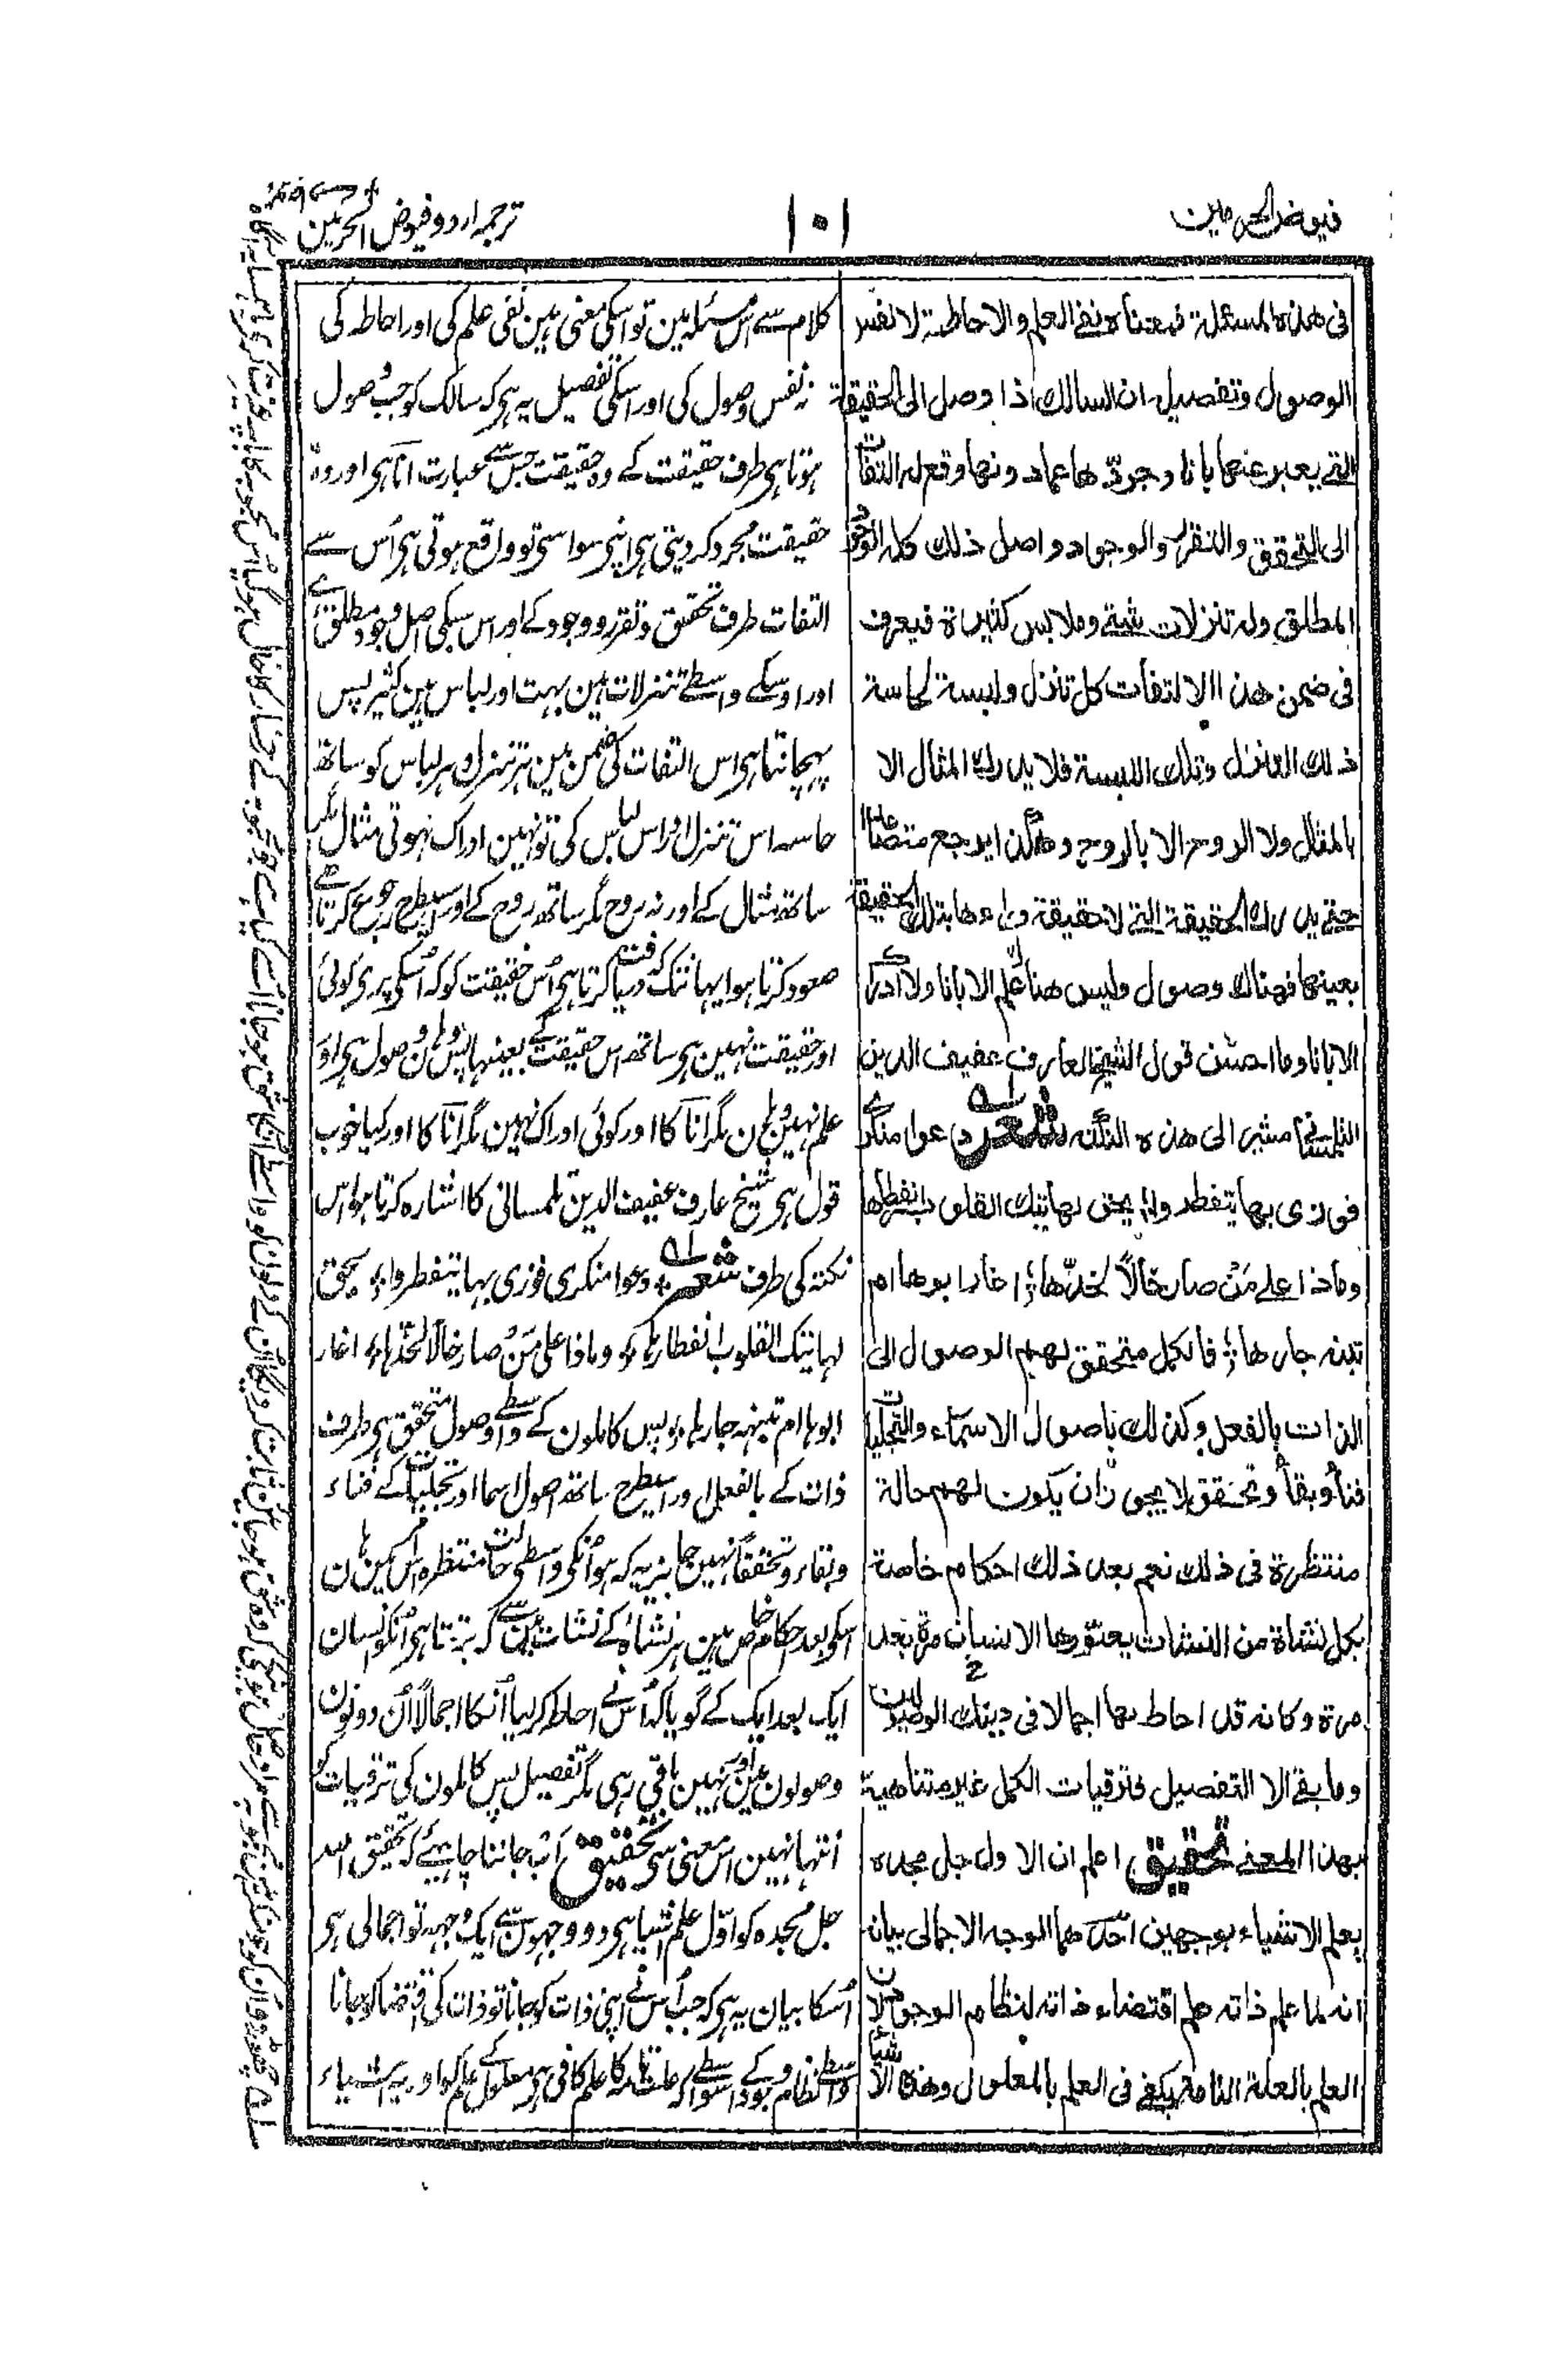 فیوض الحرمین
۱۰۱
ترجمہ اردو فیوض الحرمین
فی هذه المسئلة فمعناه نفی العلم والاحاطة لا نفس
الوصول وتفصیله ان السالك اذا وصل الی الحقیقة
التی یعبر عنها بانا وجردها عما دونها وقع له التفات
الی التحقق والتقرر والوجود واصل ذلك كله الوجود
المطلق وله تنزلات شتی وملابس كثیرة فیعرف
فی ضمن هذا الالتفات كل تنزل ولبسة لحاسة
ذلك التنزل وتلك اللبسة فلا یدرك المثال الا
بالمثال ولا الروح الا بالروح وهكذا یرجع متصاعدا
حتی یدرك الحقیقة التی لا حقیقة وراءها بتلك الحقیقة
بعینها فهناك وصول ولیس هناك علم الا بانا ولا ادراك
الا بانا وما احسن قول الشیخ العارف عفیف الدین
التلمسانی مشیرا الی هذه النكتة شعر دعوا منكری
فوزی بها یتفطروا یحق بهاتیك القلوب انفطارها
وماذا علی من صار خالاً لخدها اغار ابوها ام
تبنه جارها فالكمل متحقق لهم الوصول الی
الذات بالفعل وكذلك باصول الاسماء والتجلیات
فناً وبقاً وتحقق لا یجوز ان یكون لهم حالة
منتظرة فی ذلك نعم بعد ذلك احكام خاصة
بكل نشاة من النشات یعتورها الانسان مرة بعد
مرة وكانه قد احاط بها اجمالا فی دینك الوصولین
وما بقی الا التفصیل فترقیات الكمل غیر متناهیة
بهذا المعنی تحقیق اعلم ان الاول جل مجده
یعلم الاشیاء بوجهین احدهما الوجه الاجمالی بیانه
انه لما علم ذاته علم اقتضاء ذاته لنظام الوجود لان
العلم بالعلة التامة یكفی فی العلم بالمعلول وهذه الاشیاء
کلام سے اس مسئلہ مین تو اسکی معنی ہین نفی علم کی اور احاطہ کی
نہ نفس وصول کی اور اسکی تفصیل یہ ہی کہ سالک کو جب وصول
ہوتا ہی طرف حقیقت کے وہ حقیقت جس سے عبارت انا ہی اور وہ
حقیقت مجرد کر دیتی ہی اپنی سوا سی تو واقع ہوتی ہی اُس سے
التفات طرف تحقق و تقرر و وجود کے اور اس سبکی اصل وجود مطلق ہے
اور اوسکے واسطے تنزلات ہین بہت اور لباس ہین کثیر پس
پہچانتا ہی اس التفات کی ضمن مین ہر تنزل و ہر لباس کو ساتھ
حاسہ اس تنزل اور اس لباس کی تو نہین ادراک ہوتی مثال مگر
ساتھ مثال کے اور نہ روح مگر ساتھ روح کے اوسیطرح رجوع کرتا ہے
صعود کرتا ہوا یہانتک کہ دریافت کرتا ہی اُس حقیقت کو کہ اُسکی پری کوئی
اور حقیقت نہین ہی ساتھ اس حقیقت کے بعینہا پس وہان وصول ہی اور
علم نہین وہان مگر انا کا اور کوئی ادراک نہین مگر انا کا اور کیا خوب
قول ہی شیخ عارف عفیف الدین تلمسانی کا اشارہ کرتا ہوا اس
نکتہ کی طرف شعر دعوا منکری فوزی بہا یتفطروا یحق
بہاتیک القلوب انفطارہا وماذا علی مَن صار خالاً لخدہا اغار
ابوہا ام تبنہ جارہا پس کاملون کے واسطے وصول متحقق ہی طرف
ذات کے بالفعل اور اسیطرح ساتھ اصول اسما اور تجلیات کے فناء
و بقاء و تحققاً نہین چاہیے یہ کہ ہو اُنکی واسطی حالت منتظرہ اس مین ہان
اسکی بعد احکام خاص ہین ہر نشاۃ کے نشات مین سے کہ برتتا ہی اُنکو انسان
ایک بعد ایک کے گویا کہ اُس نے احاطہ کر لیا اُنکا اجمالاً اُن دونون
وصولون مین اور نہین باقی رہی مگر تفصیل پس کاملون کی ترقیات کو
انتہا نہین اس معنی سی تحقیق اب جاننا چاہیے کہ تحقیق اللہ
جل مجدہ کو اوّل علم اشیا ہی دو وجہون سے ایک وجہہ تو اجمالی ہی
اُسکا بیان یہ ہی کہ جب اُس نے اپنی ذات کو جانا تو ذات کی اقتضا کو جانا
واسطے نظام وجود کے اسواسطے کہ علت تامہ کا علم کافی ہی معلول کے علم کو اور یہ اشیاء